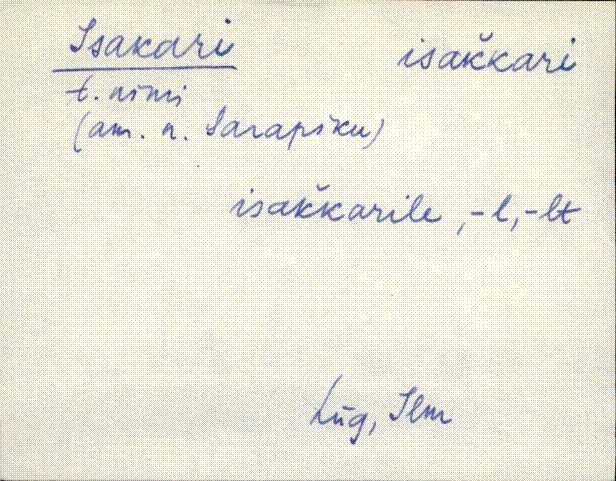 Isakari isak̆kari
t. nimi
(am. n. Sarapiku)
isak̆karile, -l, -lt
Lüg, Ilm